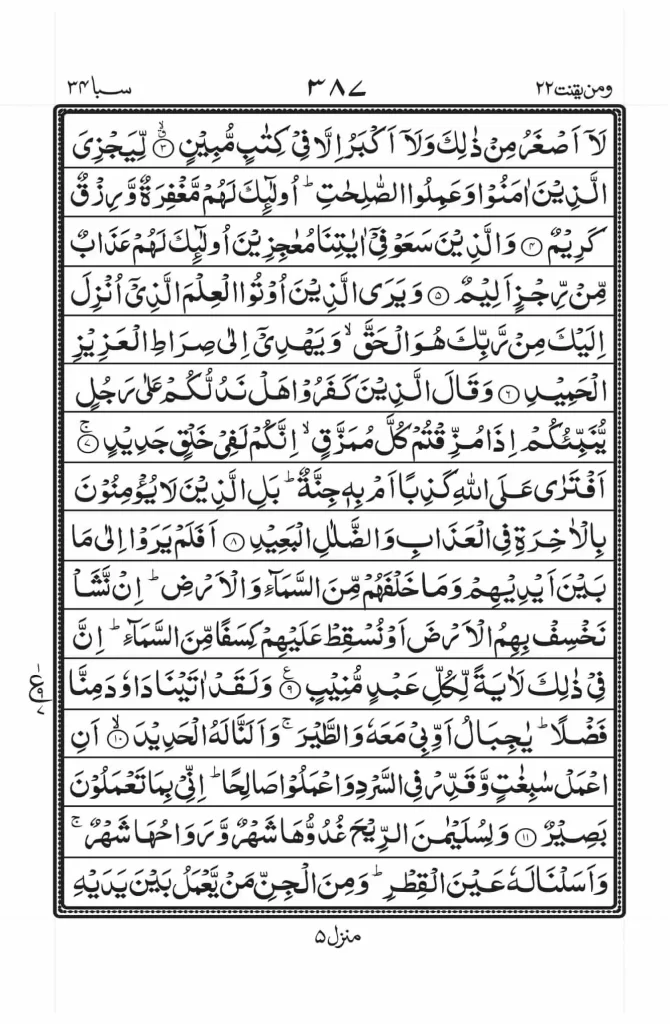 سبا ۳۴ ۳۸۷ ومن یقنت ۲۲
لَاۤ اَصْغَرُ مِنْ ذٰلِكَ وَلَاۤ اَكْبَرُ اِلَّا فِیْ كِتٰبٍ مُّبِیْنٍ ۙ﴿۳﴾ لِّیَجْزِیَ
الَّذِیْنَ اٰمَنُوْا وَعَمِلُوا الصّٰلِحٰتِ ؕ اُولٰٓئِكَ لَهُمْ مَّغْفِرَةٌ وَّرِزْقٌ
كَرِیْمٌ ﴿۴﴾ وَالَّذِیْنَ سَعَوْ فِیْۤ اٰیٰتِنَا مُعٰجِزِیْنَ اُولٰٓئِكَ لَهُمْ عَذَابٌ
مِّنْ رِّجْزٍ اَلِیْمٌ ﴿۵﴾ وَیَرَی الَّذِیْنَ اُوْتُوا الْعِلْمَ الَّذِیْۤ اُنْزِلَ
اِلَیْكَ مِنْ رَّبِّكَ هُوَ الْحَقَّ ۙ وَیَهْدِیْۤ اِلٰی صِرَاطِ الْعَزِیْزِ
الْحَمِیْدِ ﴿۶﴾ وَقَالَ الَّذِیْنَ كَفَرُوْا هَلْ نَدُلُّكُمْ عَلٰی رَجُلٍ
یُّنَبِّئُكُمْ اِذَا مُزِّقْتُمْ كُلَّ مُمَزَّقٍ ۙ اِنَّكُمْ لَفِیْ خَلْقٍ جَدِیْدٍ ۚ﴿۷﴾
اَفْتَرٰی عَلَی اللّٰهِ كَذِبًا اَمْ بِهٖ جِنَّةٌ ؕ بَلِ الَّذِیْنَ لَا یُؤْمِنُوْنَ
بِالْاٰخِرَةِ فِی الْعَذَابِ وَالضَّلٰلِ الْبَعِیْدِ ﴿۸﴾ اَفَلَمْ یَرَوْا اِلٰی مَا
بَیْنَ اَیْدِیْهِمْ وَمَا خَلْفَهُمْ مِّنَ السَّمَآءِ وَالْاَرْضِ ؕ اِنْ نَّشَاْ
نَخْسِفْ بِهِمُ الْاَرْضَ اَوْ نُسْقِطْ عَلَیْهِمْ كِسَفًا مِّنَ السَّمَآءِ ؕ اِنَّ
فِیْ ذٰلِكَ لَاٰیَةً لِّكُلِّ عَبْدٍ مُّنِیْبٍ ﴿۹﴾ وَلَقَدْ اٰتَیْنَا دَاوٗدَ مِنَّا
فَضْلًا ؕ یٰجِبَالُ اَوِّبِیْ مَعَهٗ وَالطَّیْرَ ۚ وَاَلَنَّا لَهُ الْحَدِیْدَ ۙ﴿۱۰﴾ اَنِ
اعْمَلْ سٰبِغٰتٍ وَّقَدِّرْ فِی السَّرْدِ وَاعْمَلُوْا صَالِحًا ؕ اِنِّیْ بِمَا تَعْمَلُوْنَ
بَصِیْرٌ ﴿۱۱﴾ وَلِسُلَیْمٰنَ الرِّیْحَ غُدُوُّهَا شَهْرٌ وَّرَوَاحُهَا شَهْرٌ ۚ
وَاَسَلْنَا لَهٗ عَیْنَ الْقِطْرِ ؕ وَمِنَ الْجِنِّ مَنْ یَّعْمَلُ بَیْنَ یَدَیْهِ
منزل ۵